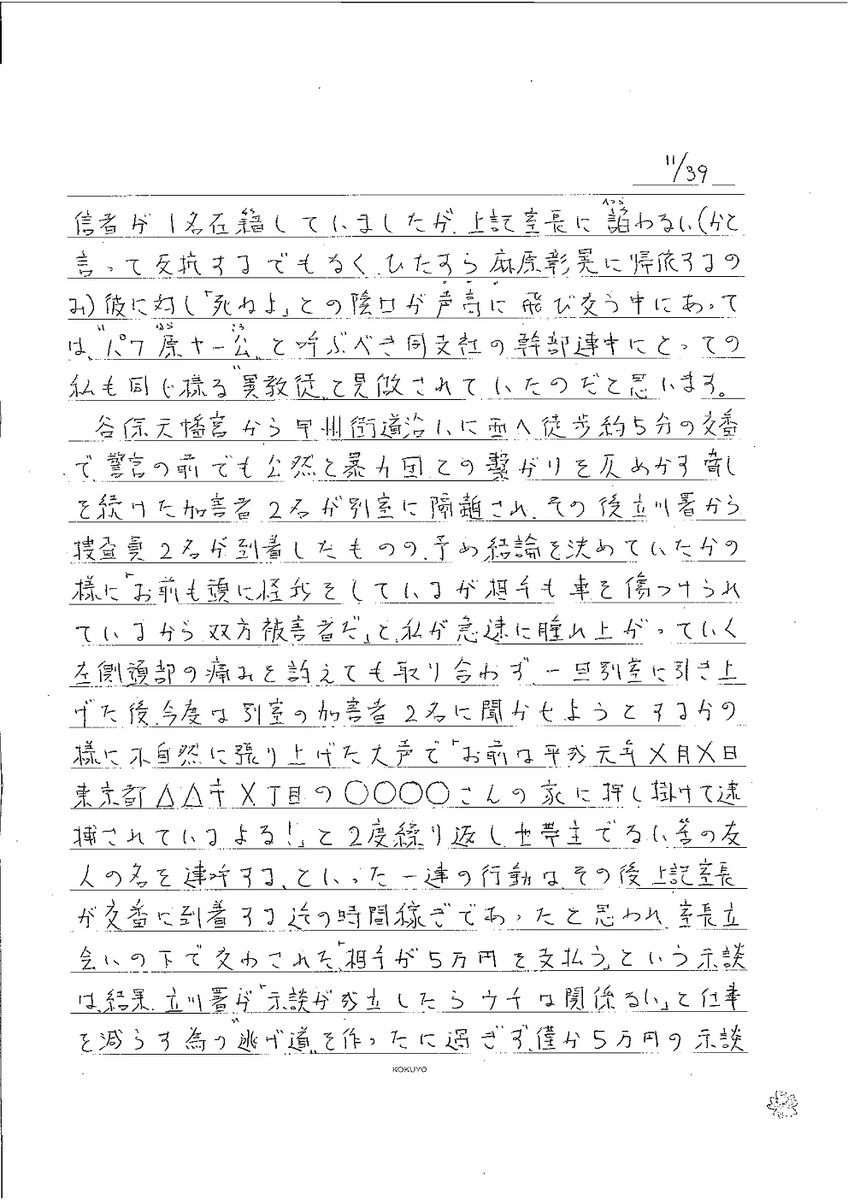 11/39
信者が1名在籍していましたが、上記室長に諂わない(かと
言って反抗するでもなく、ひたすら麻原彰晃に帰依するの
み)彼に対し「死ねよ」との陰口が声高に飛び交う中にあって
は、"パワ原ヤー公"と呼ぶべき同支社の幹部連中にとっての
私も同じ様な"異教徒"と見做されていたのだと思います。
谷保天満宮から甲州街道沿いに西へ徒歩約5分の交番
で、警官の前でも公然と暴力団との繋がりを仄めかす脅し
を続けた加害者2名が別室に隔離され、その後立川署から
捜査員2名が到着したものの、予め結論を決めていたかの
様に「お前も頭に怪我をしているが相手も車を傷つけられ
ているから双方被害者だ」と、私が急速に腫れ上がっていく
左側頭部の痛みを訴えても取り合わず、一旦別室に引き上
げた後、今度は別室の加害者2名に聞かせようとするかの
様に不自然に張り上げた大声で「お前は平成元年X月X日
東京都△△市X丁目の○○○○さんの家に押し掛けて逮
捕されているよな!」と2度繰り返し世帯主でない筈の友
人の名を連呼する、といった一連の行動はその後上記室長
が交番に到着する迄の時間稼ぎであったと思われ、室長立
会いの下で交わされた「相手が5万円を支払う」という示談
は、結果、立川署が「示談が成立したらウチは関係ない」と仕事
を減らす為の"逃げ道"を作ったに過ぎず、僅か5万円の示談
KOKUYO